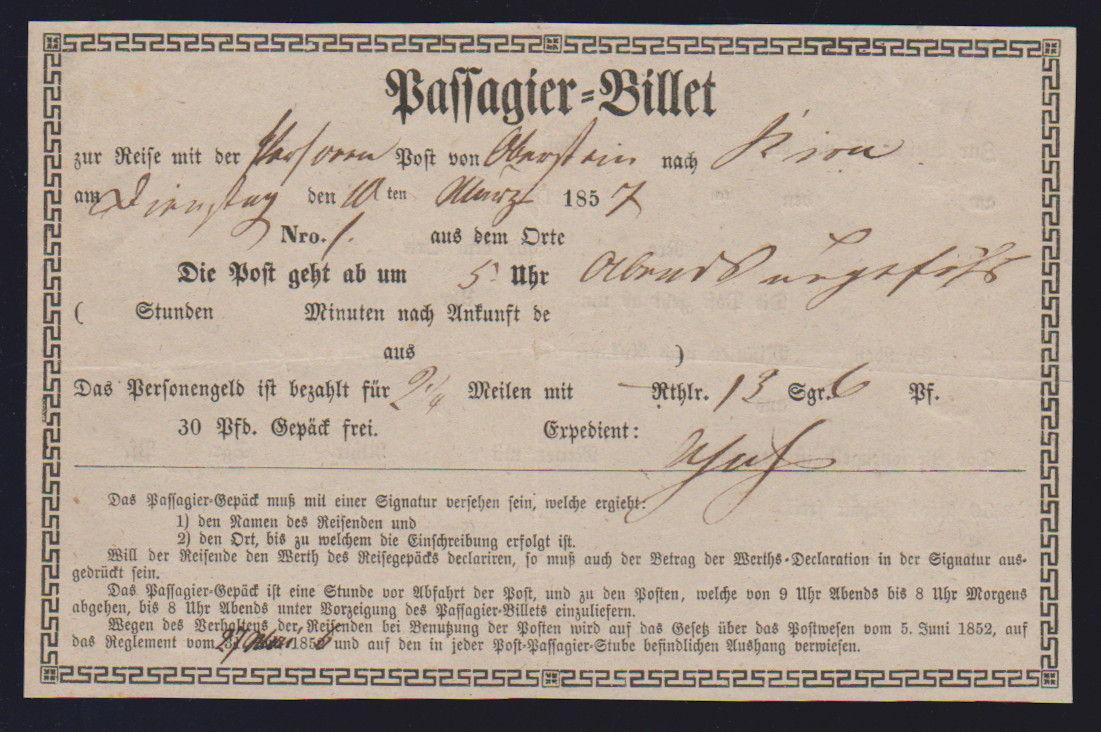 Passagier-Billet
zur Reise mit der Personen Post von Oberstein nach Kirn
am Dienstag den 10 ten März 1857
Nro. 1. aus dem Orte
Die Post geht ab um 5 Uhr Abends ungefähr
( Stunden Minuten nach Ankunft de
aus )
Das Personengeld ist bezahlt für 2 1/4 Meilen mit — Rthlr. 13 Sgr. 6 Pf.
30 Pfd. Gepäck frei. Expedient:
Das Passagier-Gepäck muß mit einer Signatur versehen sein, welche ergiebt:
1) den Namen des Reisenden und
2) den Ort, bis zu welchem die Einschreibung erfolgt ist.
Will der Reisende den Werth des Reisegepäcks declariren, so muß auch der Betrag der Werths-Declaration in der Signatur aus-
gedrückt sein.
Das Passagier-Gepäck ist eine Stunde vor Abfahrt der Post, und zu den Posten, welche von 9 Uhr Abends bis 8 Uhr Morgens
abgehen, bis 8 Uhr Abends unter Vorzeigung des Passagier-Billets einzuliefern.
Wegen des Verhaltens der Reisenden bei Benutzung der Posten wird auf das Gesetz über das Postwesen vom 5. Juni 1852, auf
das Reglement vom 1856 und auf den in jeder Post-Passagier-Stube befindlichen Aushang verwiesen.